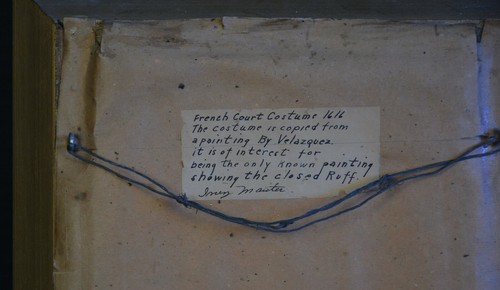 French Court Costume 1616
The costume is copied from
a painting By Velazquez
it is of interest for
being the only known painting
showing the closed Ruff.